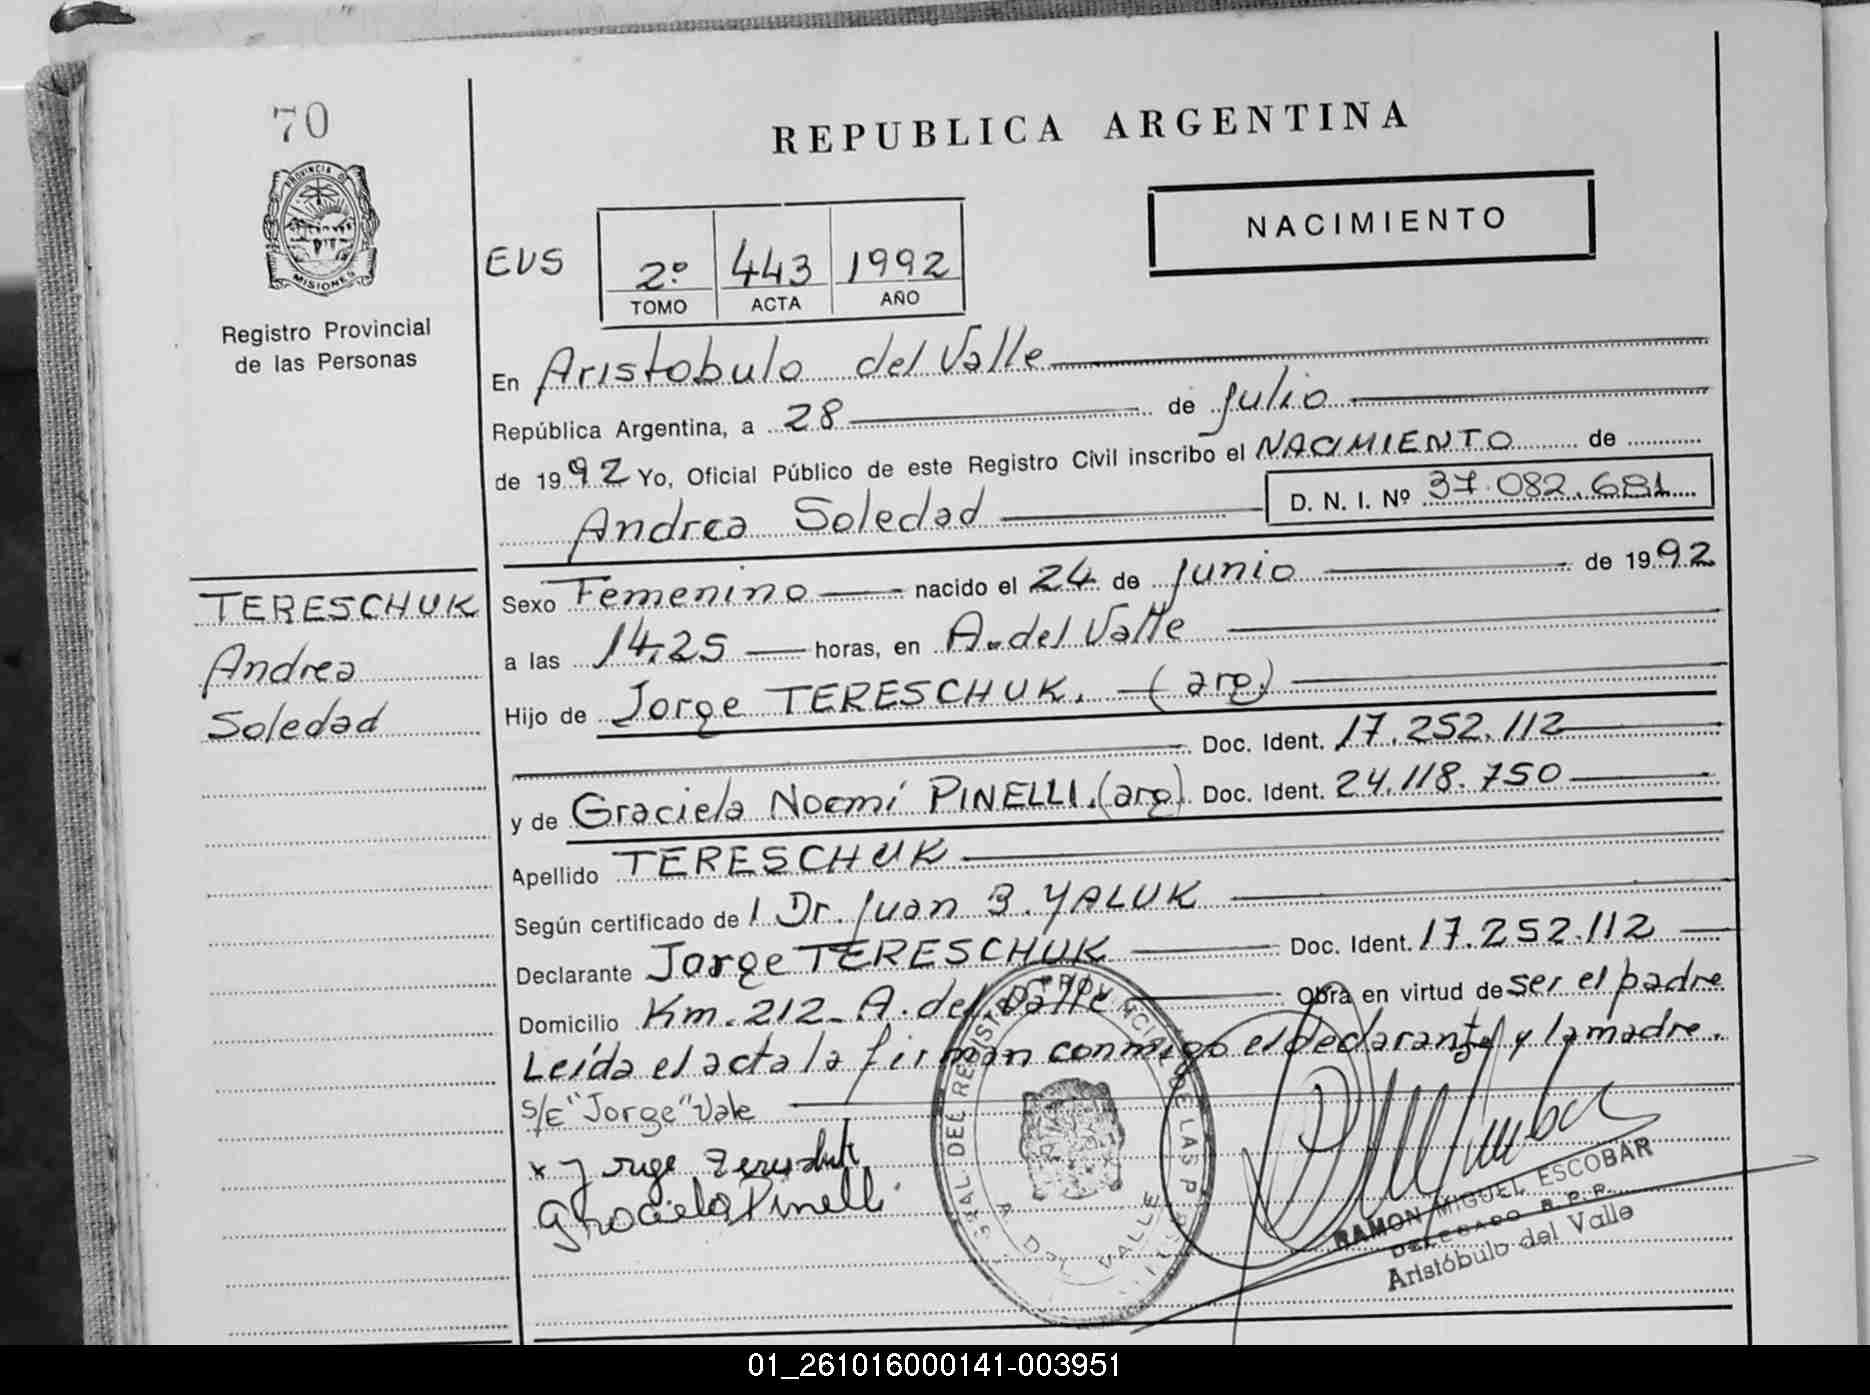 70
PROVINCIA DE
MISIONES
Registro Provincial
de las Personas
TERESCHUK
Andrea
Soledad
REPUBLICA ARGENTINA
NACIMIENTO
EVS 2º 443 1992
TOMO ACTA AÑO
En Aristobulo del Valle
República Argentina, a 28 de julio
de 1992 Yo, Oficial Público de este Registro Civil inscribo el NACIMIENTO de
Andrea Soledad D. N. I. Nº 37.082.681
Sexo Femenino nacido el 24 de junio de 1992
a las 14,25 horas, en A. del Valle
Hijo de Jorge TERESCHUK. (arg.)
Doc. Ident. 17.252.112
y de Graciela Noemí PINELLI. (arg) Doc. Ident. 24.118.750
Apellido TERESCHUK
Según certificado de l Dr. Juan B. YALUK
Declarante Jorge TERESCHUK Doc. Ident. 17.252.112
Domicilio Km. 212 - A. del Valle Obra en virtud de ser el padre
Leída el acta la firman conmigo el declarante y la madre.
S/E "Jorge" Vale
x Jorge Tereschuk
Graciela Pinelli
DEL REGISTRO PROVINCIAL DE LAS P
A. DEL VALLE
RAMON MIGUEL ESCOBAR
DELEGADO R.P.P.
Aristóbulo del Valle
01_261016000141-003951